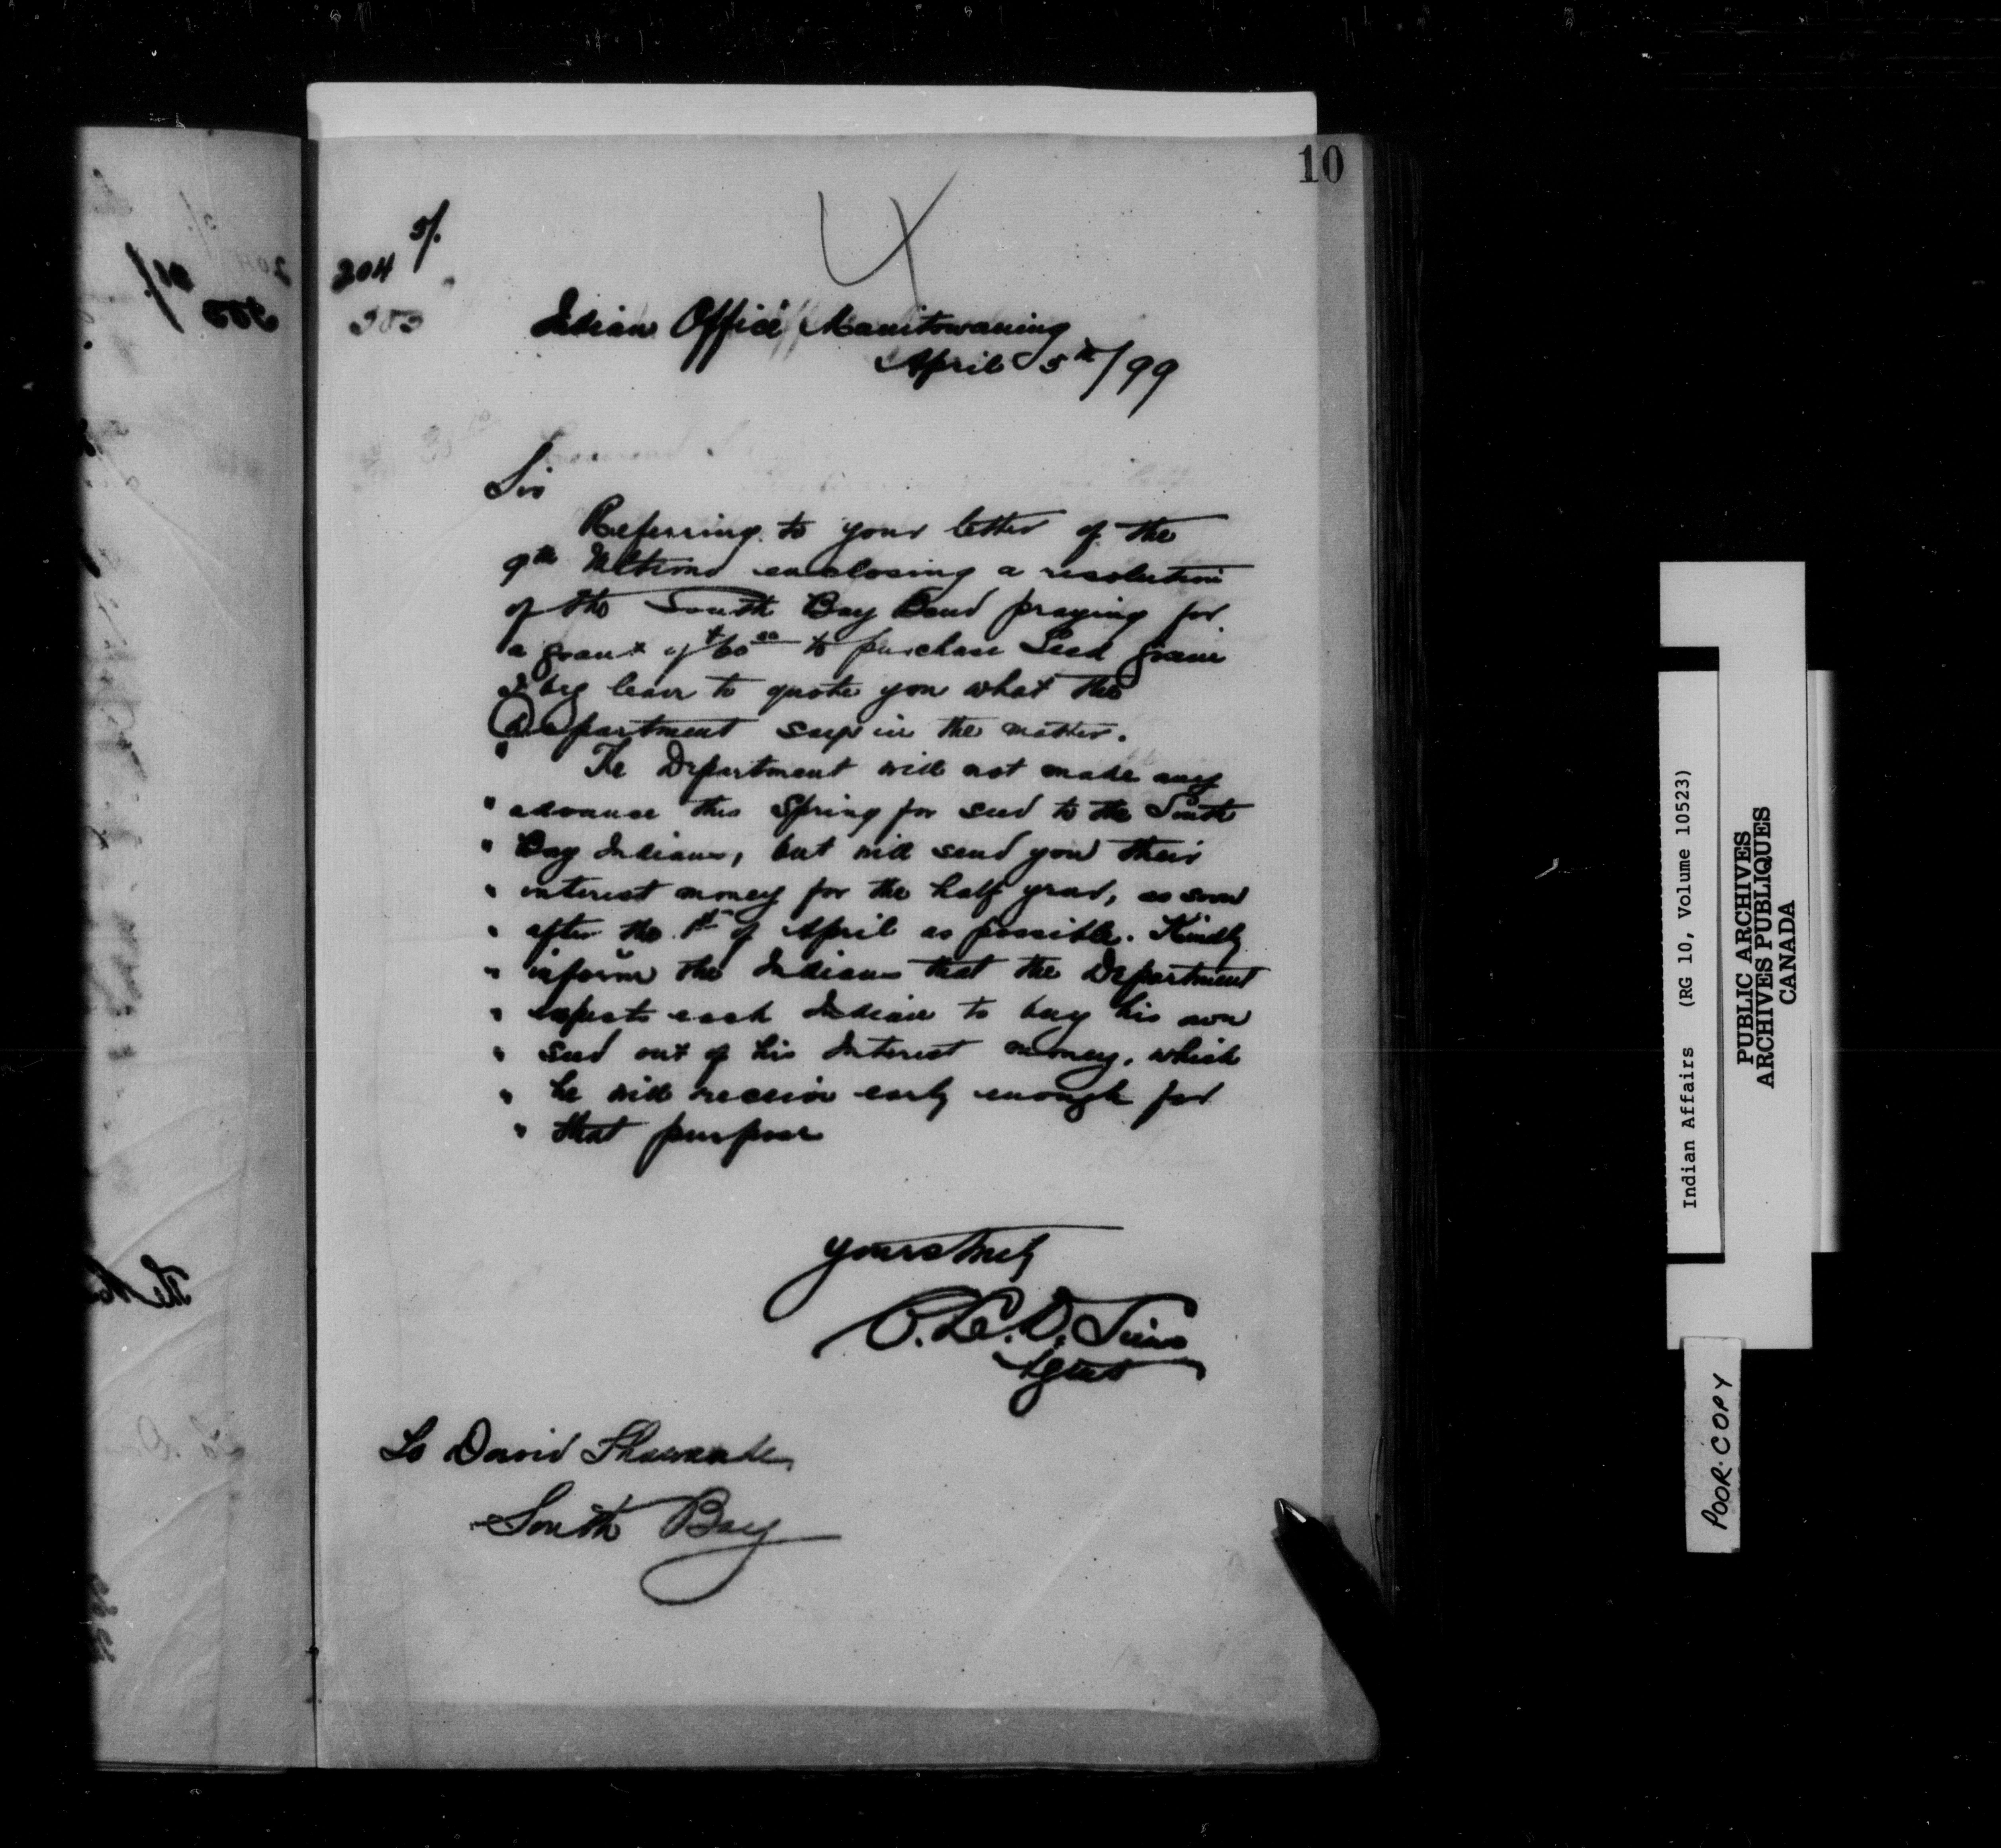 10
5/.
204
303
Indian Office Manitowaning
April 5th/99
Sir
Referring to your letter of the
9th Ultimo enclosing a resolution
of the South Bay Band praying for
a grant of $60 00 to purchase Seed grain
I beg leave to quote you what the
Department says in the matter.
" The Department will not make any
" advance this Spring for seed to the South
" Bay Indians, but will send you their
" interest money for the half year, as soon
" after the 1st of April as possible. Kindly
" inform the Indians that the Department
" expects each Indian to buy his own
" seed out of his Interest money, which
" he will receive early enough for
" that purpose
Yours truly
Agent
To David
South Bay
Indian Affairs (RG 10, Volume 10523)
PUBLIC ARCHIVES
ARCHIVES PUBLIQUES
CANADA
POOR COPY